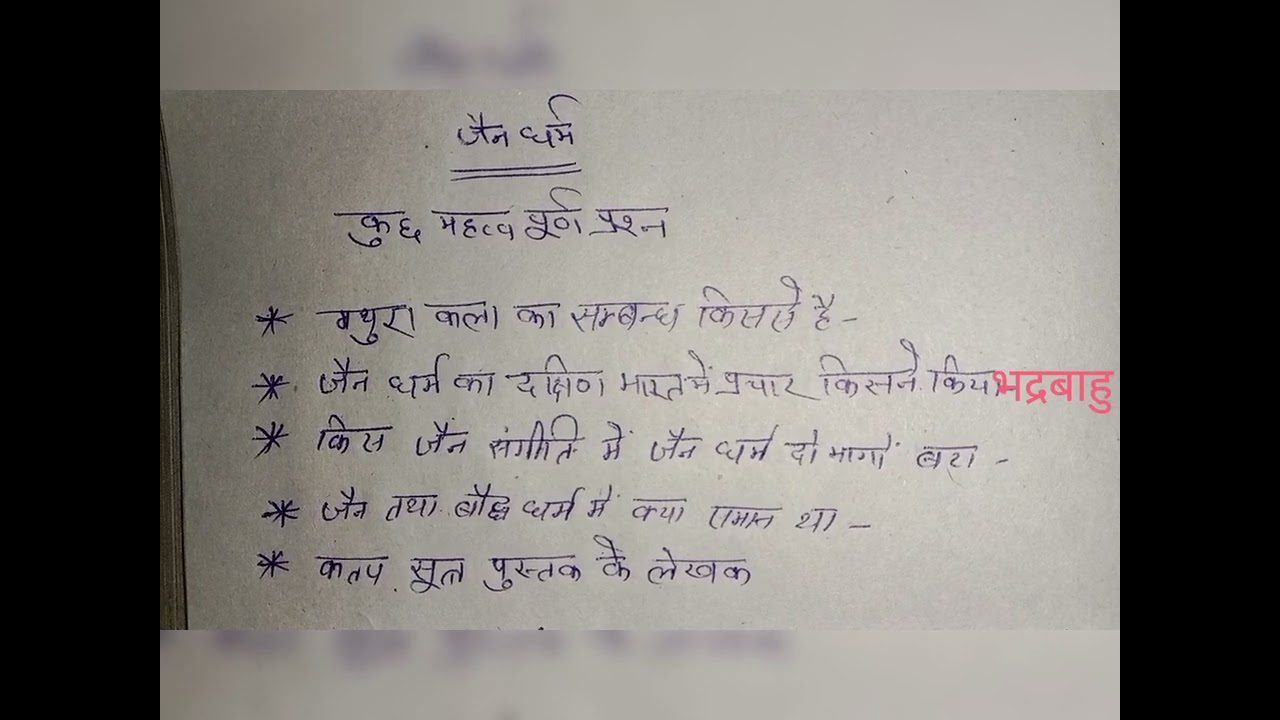 जैन धर्म
कुछ महत्व पूर्ण प्रश्न
* मथुरा कला का सम्बन्ध किससे है -
* जैन धर्म का दक्षिण भारत में प्रचार किसने किया भद्रबाहु
* किस जैन संगीति में जैन धर्म दो भागों बटा -
* जैन तथा बौद्ध धर्म में क्या समान था -
* कल्प सूत्र पुस्तक के लेखक